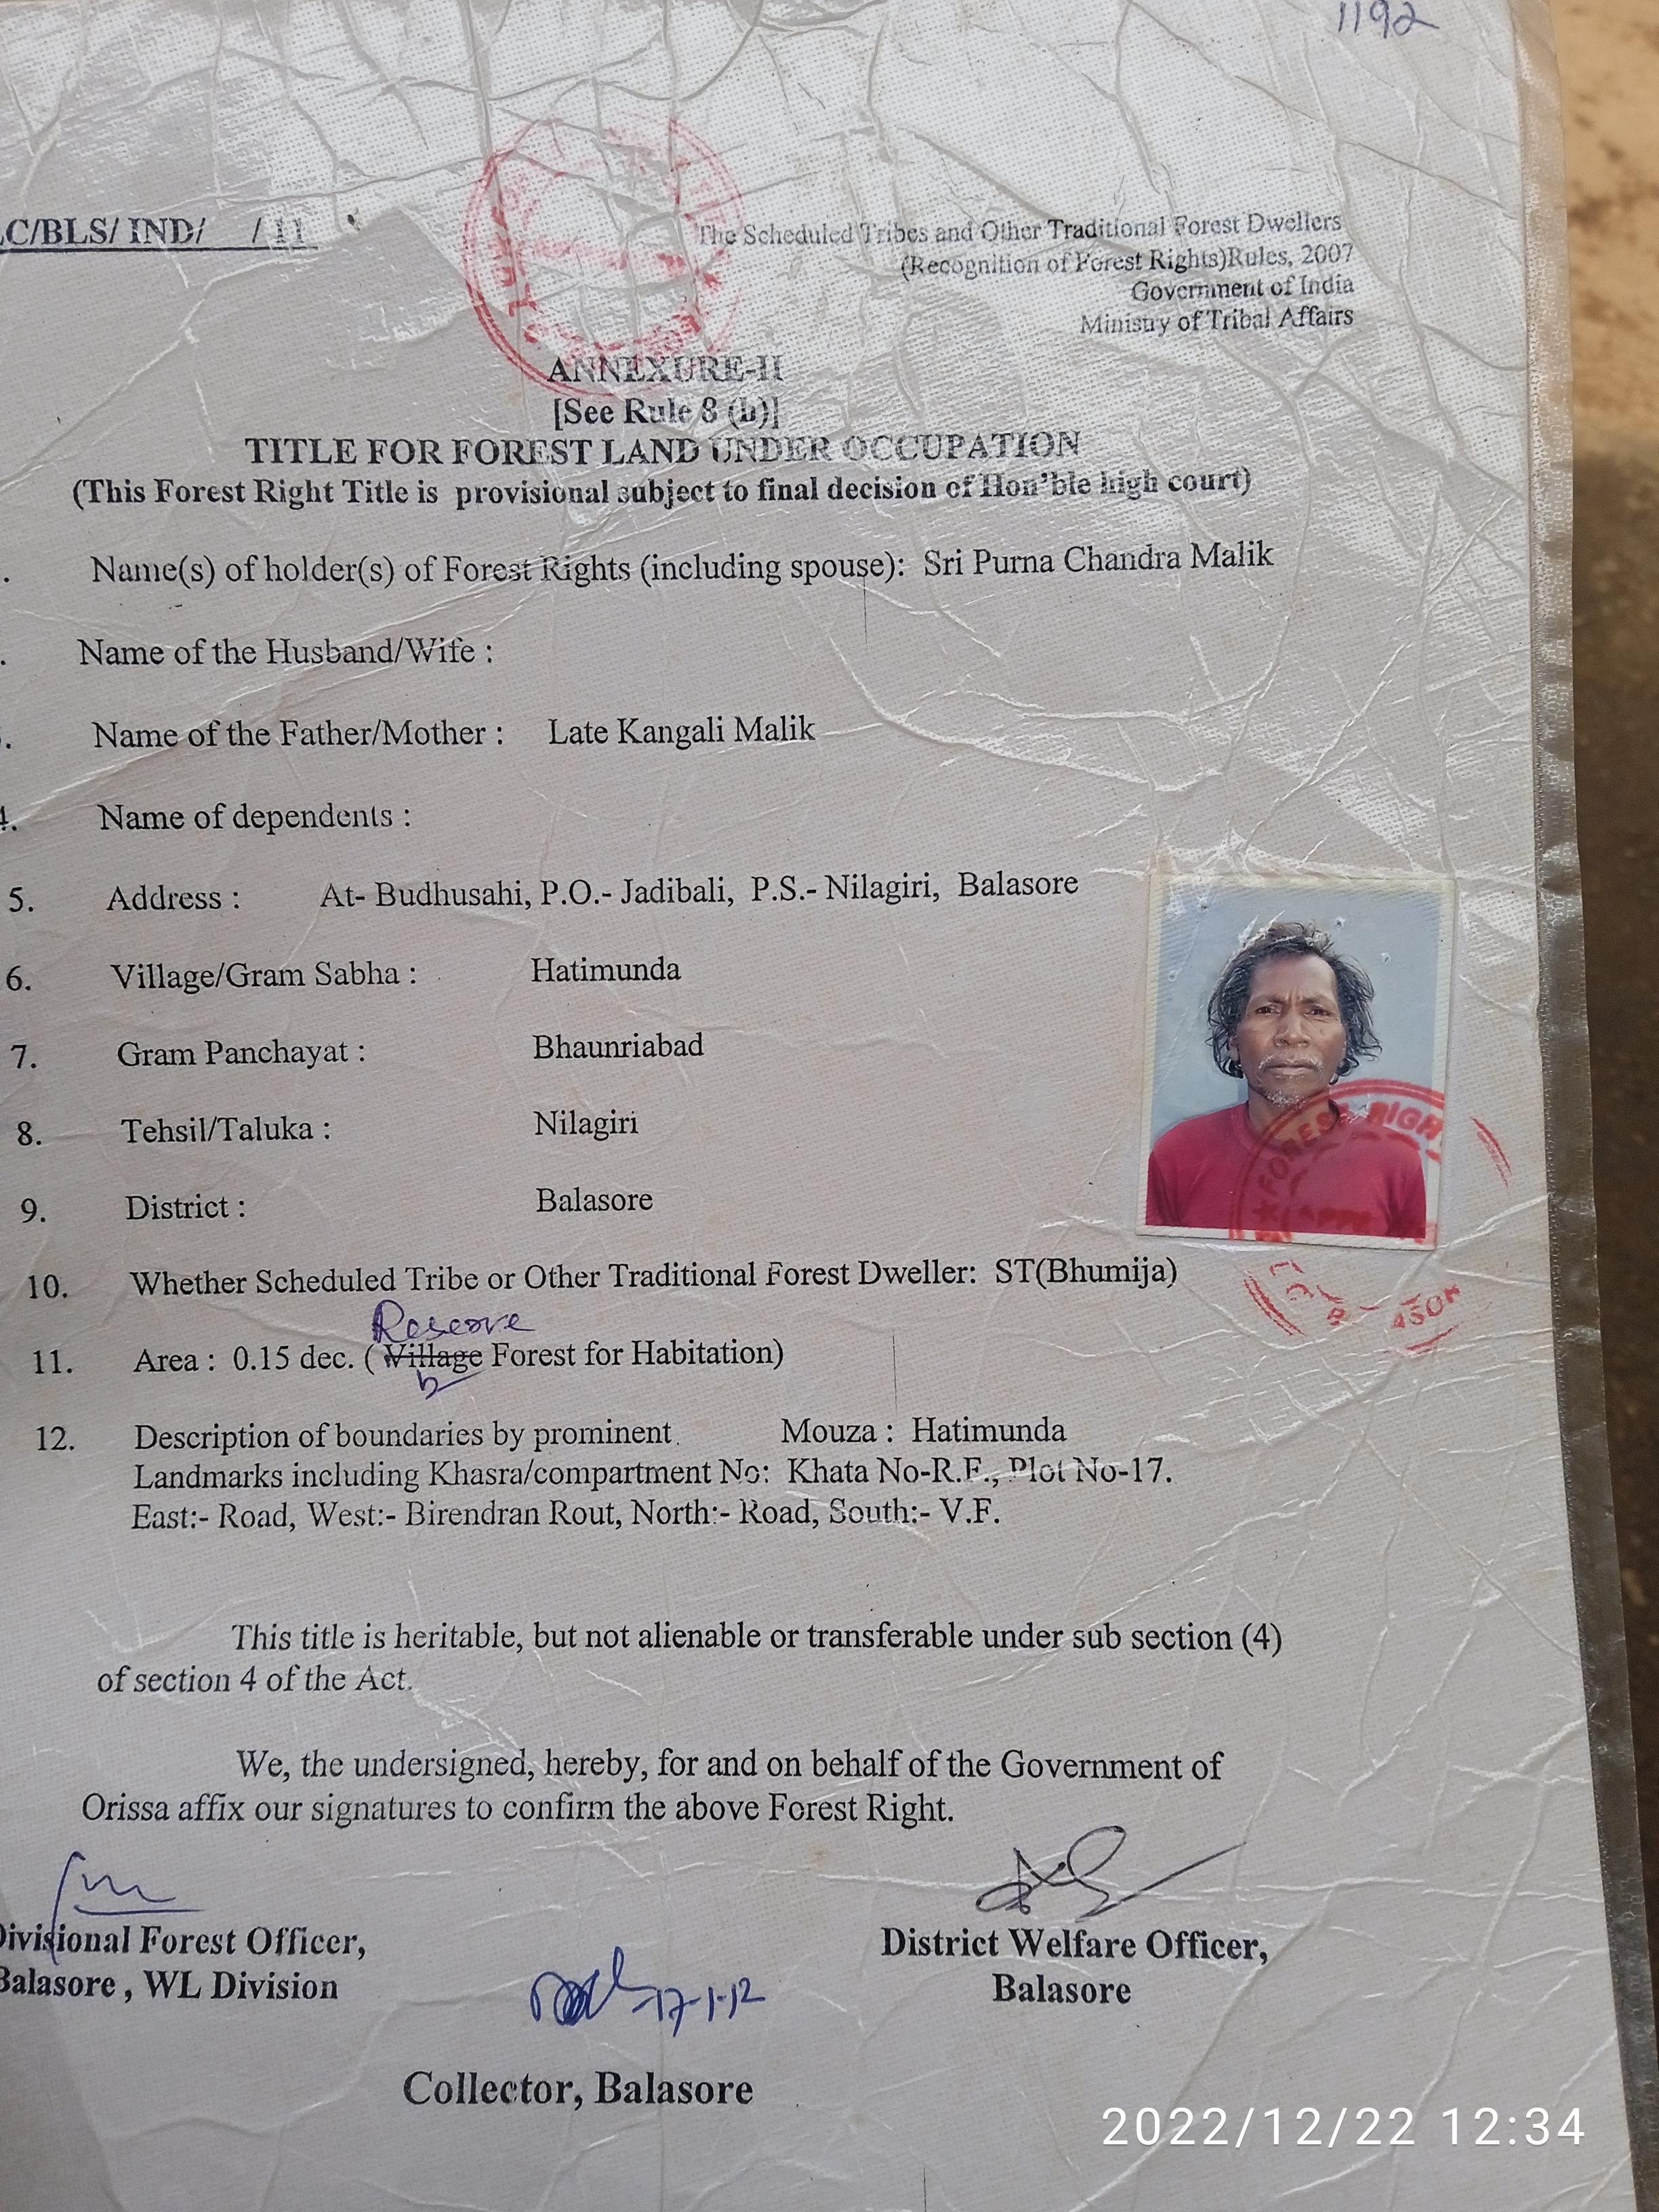 1192
LC/BLS/ IND/ / 11
The Scheduled Tribes and Other Traditional Forest Dwellers
(Recognition of Forest Rights)Rules, 2007
Government of India
Ministry of Tribal Affairs
ANNEXURE-II
[See Rule 8 (h)]
TITLE FOR FOREST LAND UNDER OCCUPATION
(This Forest Right Title is provisional subject to final decision of Hon'ble high court)
. Name(s) of holder(s) of Forest Rights (including spouse): Sri Purna Chandra Malik
. Name of the Husband/Wife :
3. Name of the Father/Mother : Late Kangali Malik
4. Name of dependents :
5. Address : At- Budhusahi, P.O.- Jadibali, P.S.- Nilagiri, Balasore
6. Village/Gram Sabha : Hatimunda
7. Gram Panchayat : Bhaunriabad
8. Tehsil/Taluka : Nilagiri
9. District : Balasore
FOREST RIGH
10. Whether Scheduled Tribe or Other Traditional Forest Dweller: ST(Bhumija)
Reserve
11. Area : 0.15 dec. ( Village Forest for Habitation)
12. Description of boundaries by prominent Mouza : Hatimunda
Landmarks including Khasra/compartment No: Khata No-R.F., Plot No-17.
East:- Road, West:- Birendran Rout, North:- Road, South:- V.F.
This title is heritable, but not alienable or transferable under sub section (4)
of section 4 of the Act.
We, the undersigned, hereby, for and on behalf of the Government of
Orissa affix our signatures to confirm the above Forest Right.
Divisional Forest Officer,
Balasore , WL Division
District Welfare Officer,
Balasore
17-1-12
Collector, Balasore
2022/12/22 12:34